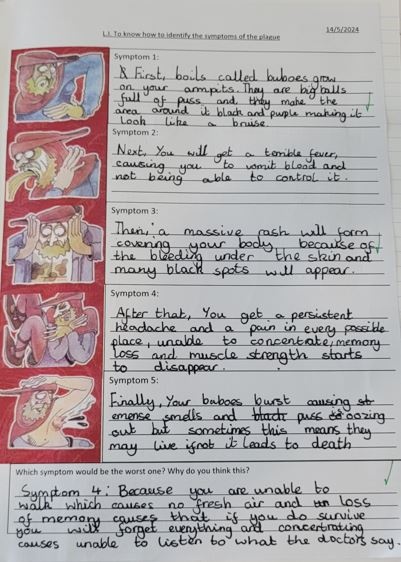 14/5/2024
L.I. To know how to identify the symptoms of the plague
Symptom 1:
First, boils called buboes grow
on your armpits. They are big balls
full of puss and, they make the
area around it black and puple making it
look like a bruise.
Symptom 2:
Next, You will get a terrible fever,
causing you to vomit blood and
not being able to control it.
Symptom 3:
Then, a massive rash will form
covering your body, because of
the bleeding under the skin and
many black spots will appear.
Symptom 4:
After that, You get a persistent
headache and a pain in every possible
place, unable to concentrate, memory
loss and muscle strength starts
to disappear.
Symptom 5:
Finally, Your baboes burst causing
emense smells and black puss oozing
out but sometimes this means they
may live ifnot it leads to death
Which symptom would be the worst one? Why do you think this?
Symptom 4: Because you are unable to
walk which causes no fresh air and loss
of memory causes that if you do survive
you will forget everything and concertrating
causes unable to listen to what the doctors say.